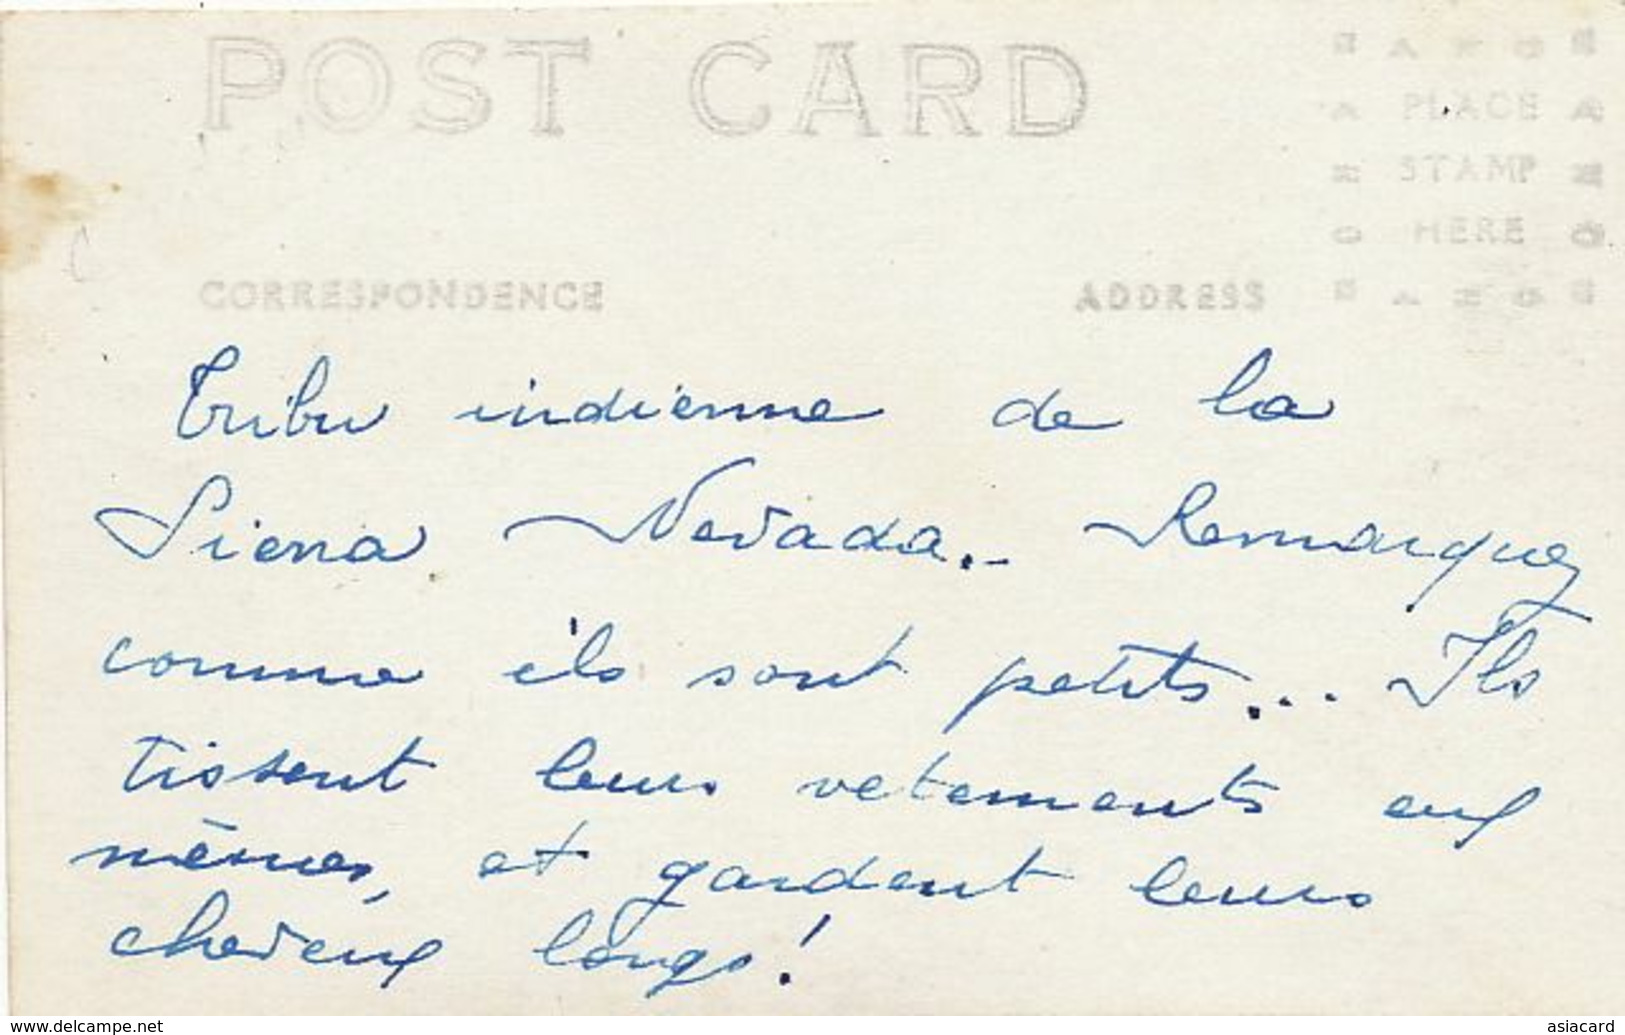 POST CARD
EAKOE
A PLACE A
K STAMP K
O HERE O
EAKOE
CORRESPONDENCE ADDRESS
Tribu indienne de la
Siena Nevada.. Remarquez
comme ils sont petits... Ils
tissent leurs vetements eux
mêmes, et gardent leurs
cheveux longs!
www.delcampe.net asiacard